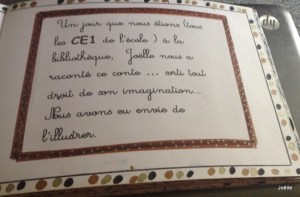 Un jour que nous étions (tous
les CE1 de l'école) à la
bibliothèque, Joëlle nous a
raconté ce conte ... sorti tout
droit de son imagination...
Nous avons eu envie de
l'illustrer.
Joëlle